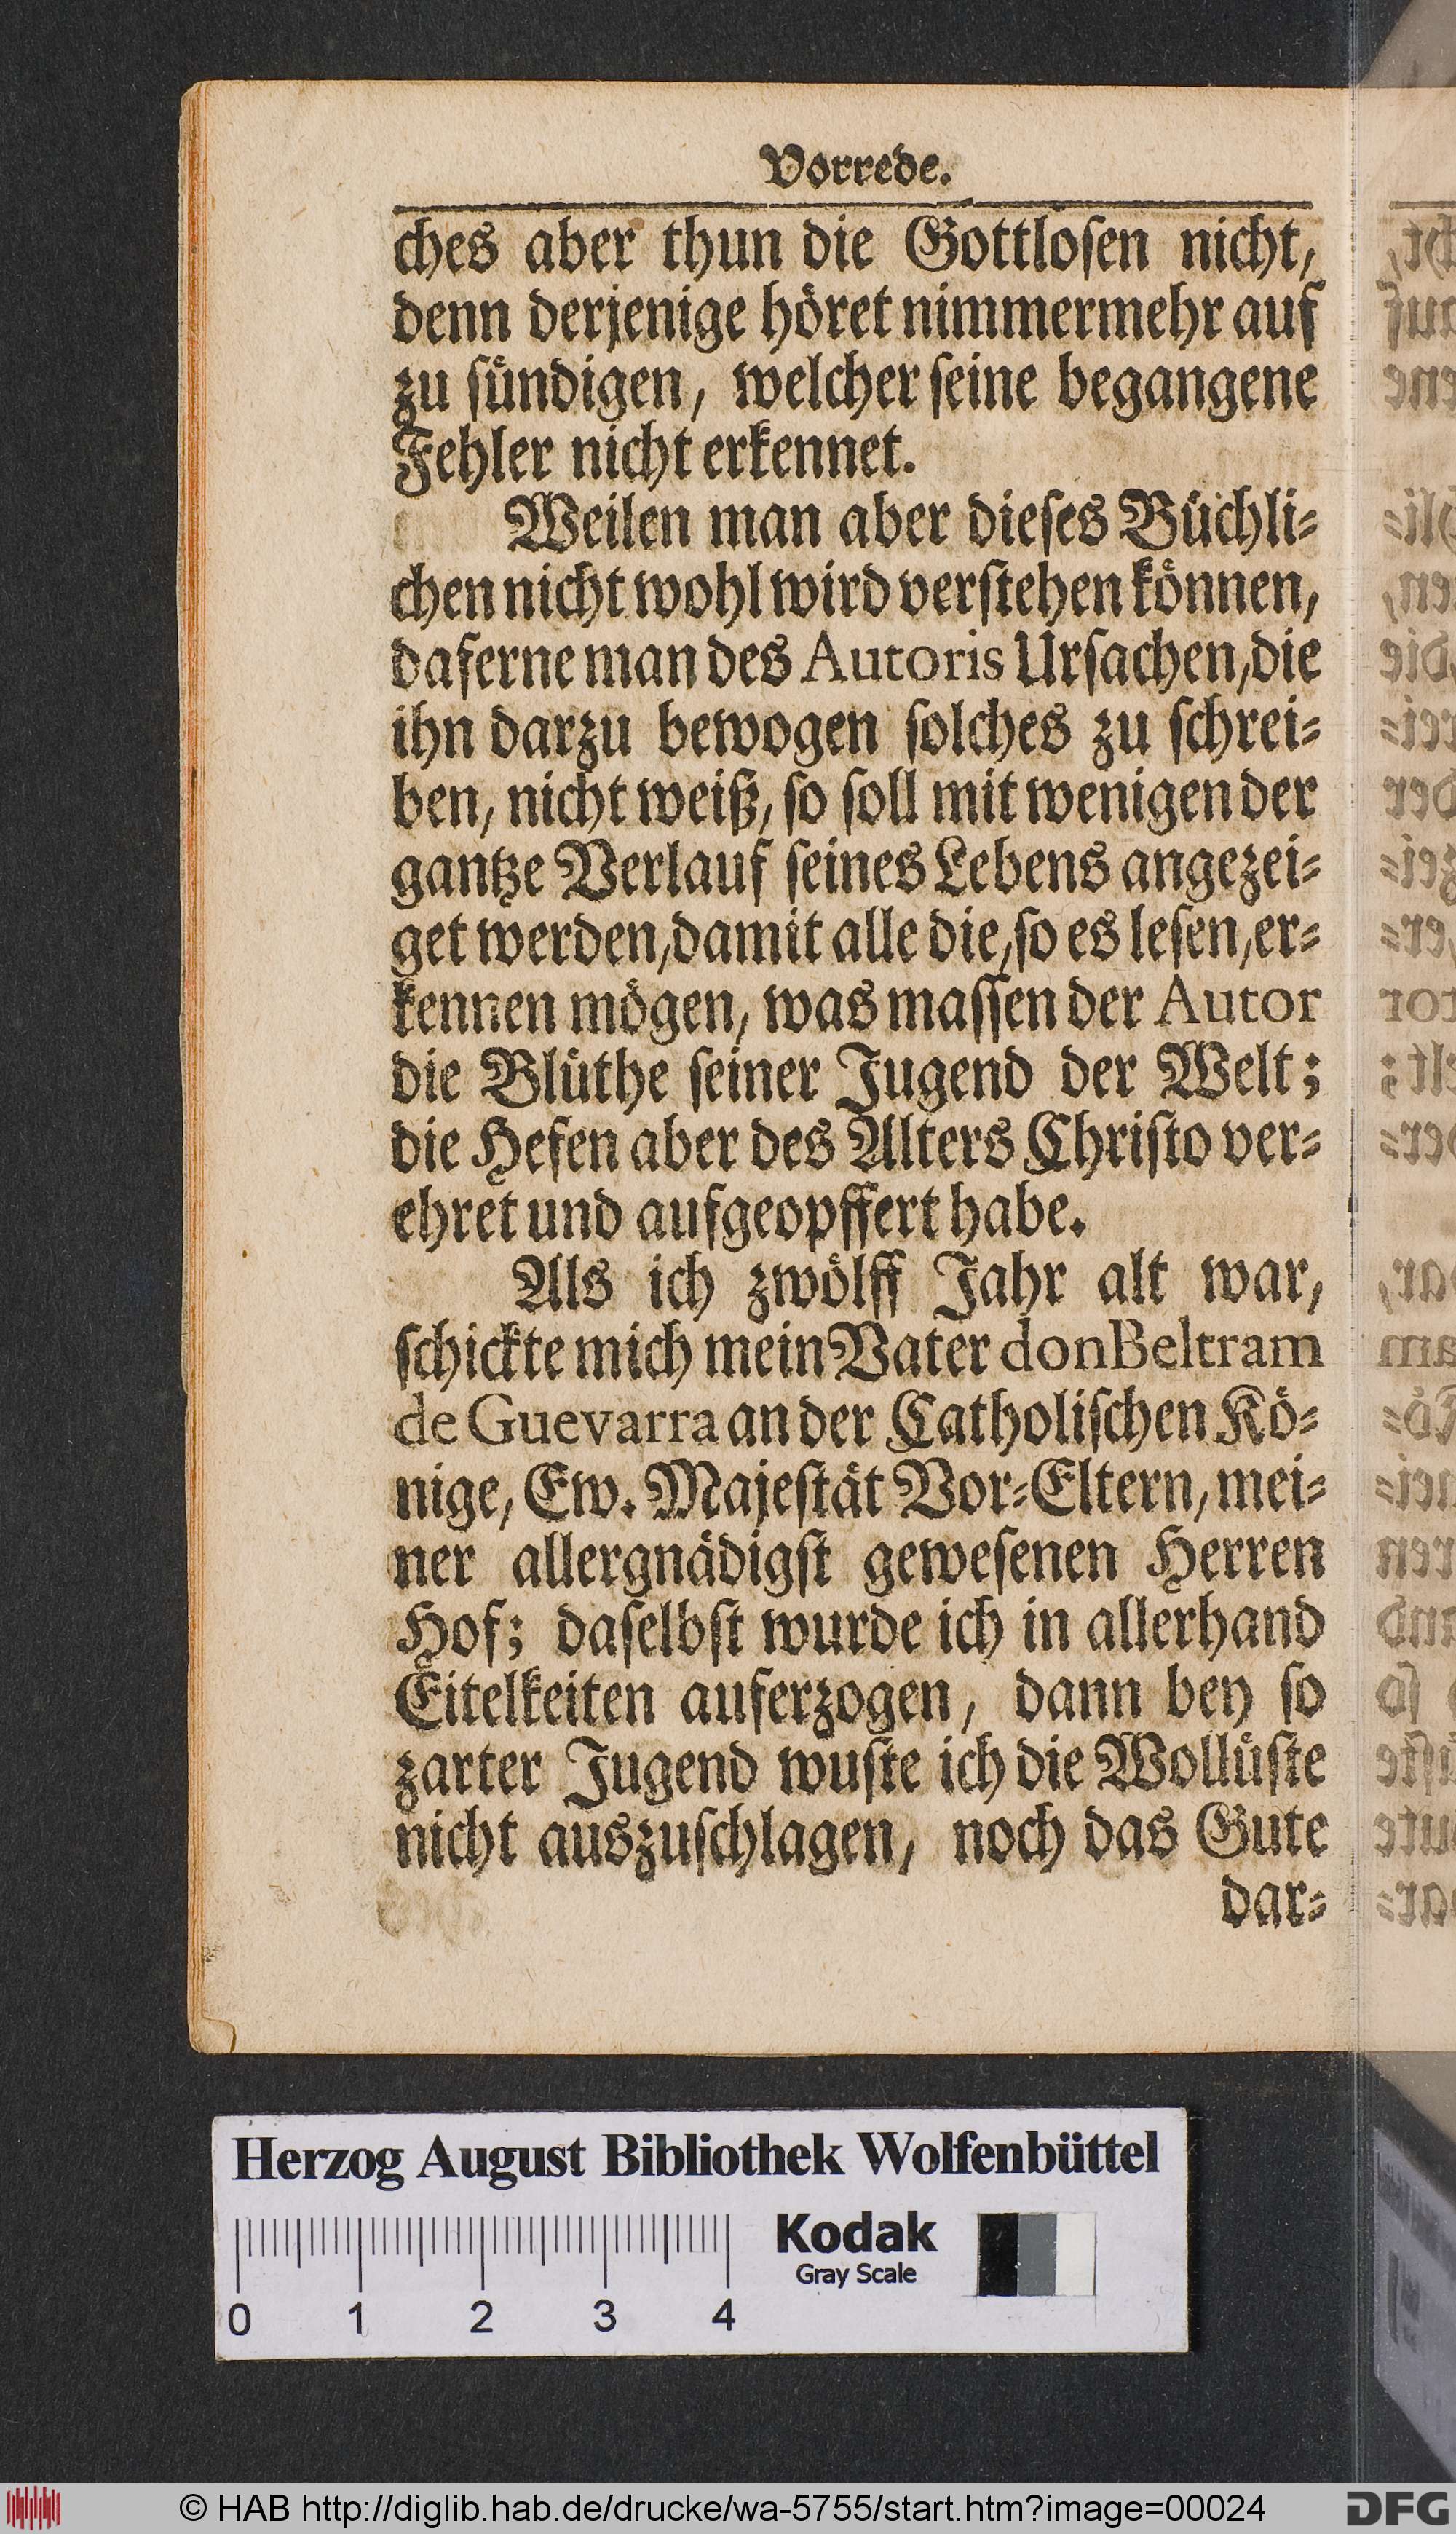 Vorrede.
ches aber thun die Gottloſen nicht,
denn derjenige höret nimmermehr auf
zu ſündigen, welcher ſeine begangene
Fehler nicht erkennet.
Weilen man aber dieſes Büchli-
chen nicht wohl wird verſtehen können,
daferne man des Autoris Urſachen, die
ihn darzu bewogen ſolches zu ſchrei-
ben, nicht weiß, ſo ſoll mit wenigen der
gantze Verlauf ſeines Lebens angezei-
get werden, damit alle die, ſo es leſen, er-
kennen mögen, was maſſen der Autor
die Blüthe ſeiner Jugend der Welt;
die Hefen aber des Alters Chriſto ver-
ehret und aufgeopffert habe.
Als ich zwölff Jahr alt war,
ſchickte mich mein Vater don Beltram
de Guevarra an der Catholiſchen Kö-
nige, Ew. Majeſtät Vor-Eltern, mei-
ner allergnädigſt geweſenen Herren
Hof; daſelbſt wurde ich in allerhand
Eitelkeiten auferzogen, dann bey ſo
zarter Jugend wuſte ich die Wollüſte
nicht auszuſchlagen, noch das Gute
dar-
Herzog August Bibliothek Wolfenbüttel
Kodak
Gray Scale
0 1 2 3 4
© HAB http://diglib.hab.de/drucke/wa-5755/start.htm?image=00024
DFG